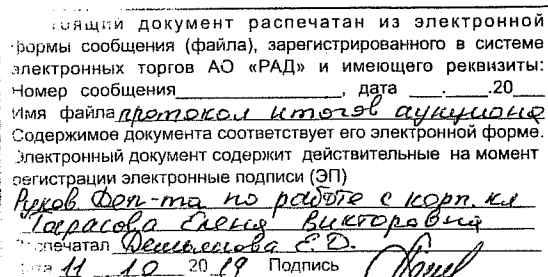 настоящий документ распечатан из электронной
формы сообщения (файла), зарегистрированного в системе
электронных торгов АО «РАД» и имеющего реквизиты:
Номер сообщения____________, дата ___.____.20___
Имя файла протокол итогов аукциона
Содержимое документа соответствует его электронной форме.
Электронный документ содержит действительные на момент
регистрации электронные подписи (ЭП)
Руков Деп-та по работе с корп. кл
Тарасова Елена Викторовна
Распечатал Е.Д.
Дата 11 10 2019 Подпись